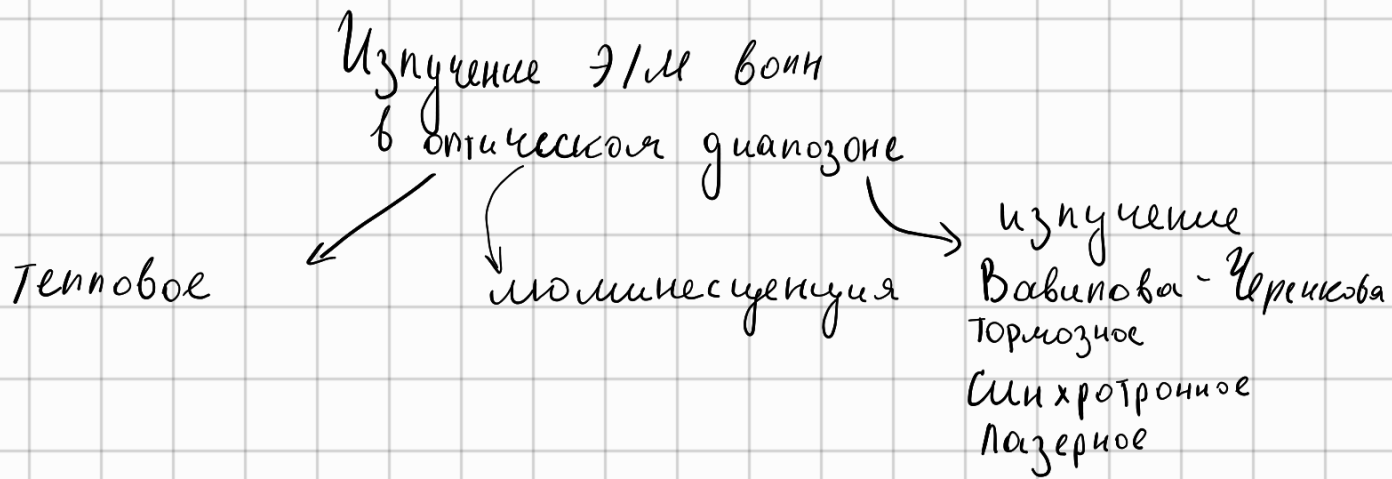 Излучение Э/М волн
в оптическом диапозоне
Тепловое
люминесценция
излучение
Вавилова - Черенкова
Тормозное
Синхротронное
Лазерное